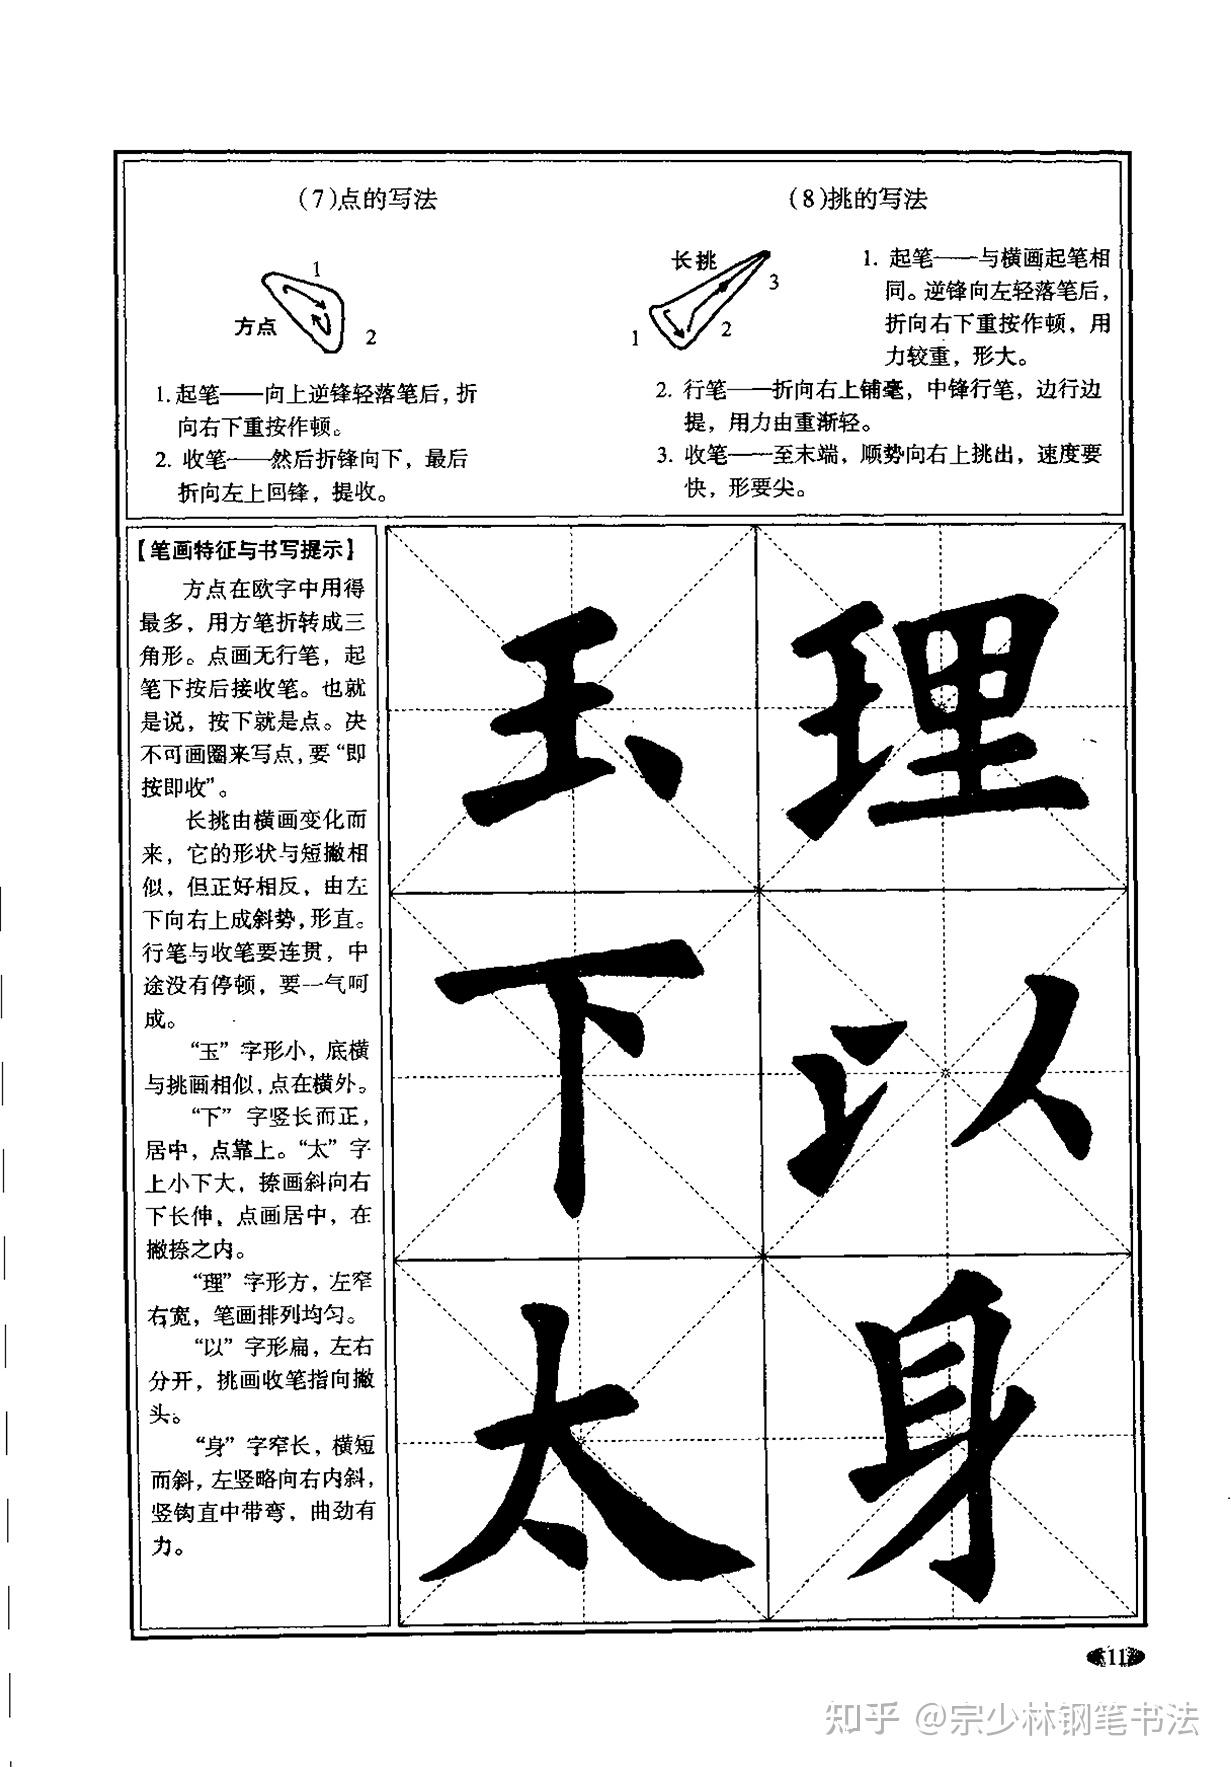 (7)点的写法
1
方点
2
1.起笔——向上逆锋轻落笔后,折
向右下重按作顿。
2. 收笔——然后折锋向下，最后
折向左上回锋，提收。
(8)挑的写法
长挑
3
1
2
1. 起笔——与横画起笔相
同。逆锋向左轻落笔后，
折向右下重按作顿，用
力较重，形大。
2. 行笔——折向右上铺毫，中锋行笔，边行边
提，用力由重渐轻。
3. 收笔——至末端，顺势向右上挑出，速度要
快，形要尖。
【笔画特征与书写提示】
方点在欧字中用得
最多，用方笔折转成三
角形。点画无行笔，起
笔下按后接收笔。也就
是说，按下就是点。决
不可画圈来写点,要“即
按即收”。
长挑由横画变化而
来，它的形状与短撇相
似，但正好相反，由左
下向右上成斜势,形直。
行笔与收笔要连贯，中
途没有停顿，要一气呵
成。
“玉”字形小，底横
与挑画相似,点在横外。
“下”字竖长而正，
居中，点靠上。“太”字
上小下大，捺画斜向右
下长伸，点画居中，在
撇捺之内。
“理”字形方，左窄
右宽，笔画排列均匀。
“以”字形扁，左右
分开，挑画收笔指向撇
头。
“身”字窄长，横短
而斜,左竖略向右内斜,
竖钩直中带弯，曲劲有
力。
玉 理
下 以
太 身
11
知乎 @宗少林钢笔书法